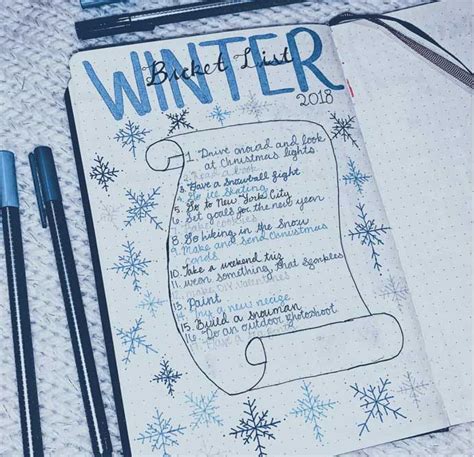 WINTER
Bucket List
2018
1. Drive around and look
at Christmas lights
Read a book
3. Have a snowball fight
Go ice skating
5. Go to New York City
6. Set goals for the new year
8. Go hiking in the snow
9. Make and send Christmas
cards
10. Take a weekend trip
11. wear something that sparkles
Make DIY valentines
13. Paint
14. Try a new recipe
15. Build a snowman
16. Do an outdoor photoshoot